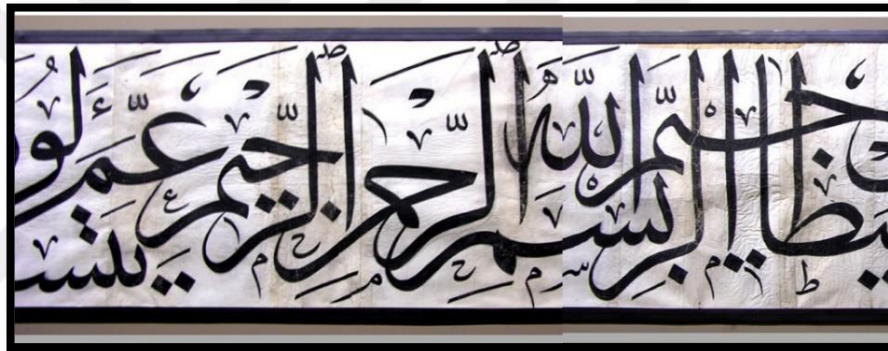 الرجيم بسم الله الرحمن الرحيم عم يتساءلون